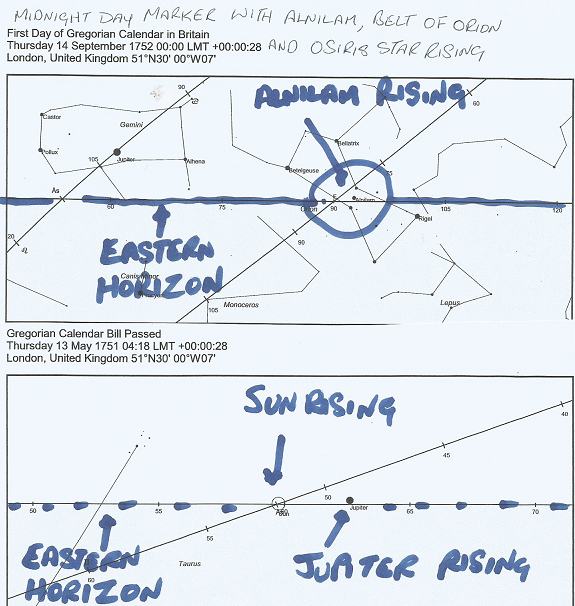 MIDNIGHT DAY MARKER WITH ALNILAM, BELT OF ORION
First Day of Gregorian Calendar in Britain
Thursday 14 September 1752 00:00 LMT +00:00:28 AND OSIRIS STAR RISING
London, United Kingdom 51°N30' 00°W07'
90
60
ALNILAM RISING
Castor
Gemini
Bellatrix
Pollux
105
Jupiter
Alhena
Betelgeuse
75
As
60
75
90
Alnilam
105
120
Orion
Rigel
20
90
EASTERN
HORIZON
Canis Minor
Procyon
105
Monoceros
Lepus
Gregorian Calendar Bill Passed
Thursday 13 May 1751 04:18 LMT +00:00:28
London, United Kingdom 51°N30' 00°W07'
SUN RISING
40
45
50
50
55
Sun
Jupiter
65
70
55
EASTERN
HORIZON
Taurus
60
JUPITER RISING